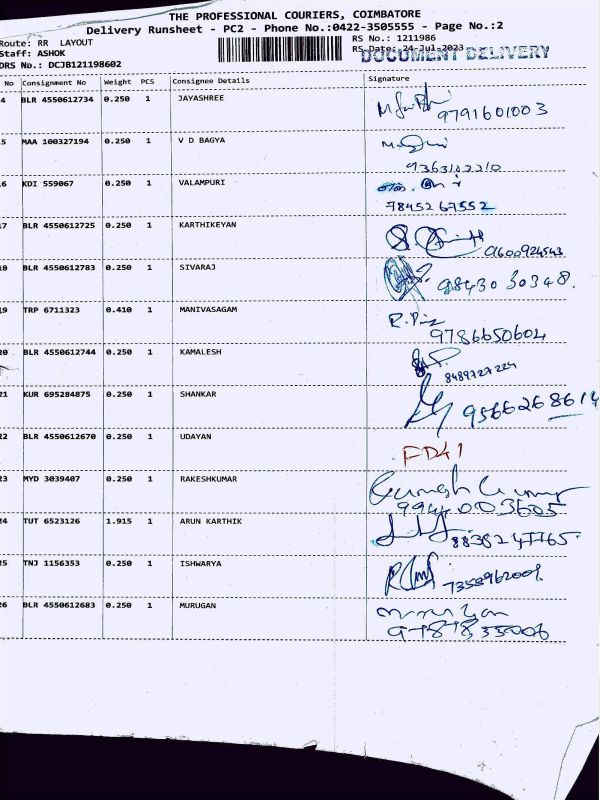 THE PROFESSIONAL COURIERS, COIMBATORE
Delivery Runsheet - PC2 - Phone No.:0422-3505555 - Page No.:2
Route: RR LAYOUT
RS No.: 1211986
Staff: ASHOK
RS Date: 24-Jul-2023
DOCUMENT DELIVERY
DRS No.: DCJB121198602
No Consignment No Weight PCS Consignee Details Signature
4 BLR 4550612734 0.250 1 JAYASHREE
9791601003
5 MAA 100327194 0.250 1 V D BAGYA
9363102210
6 KDI 559067 0.250 1 VALAMPURI
78452 67552
17 BLR 4550612725 0.250 1 KARTHIKEYAN
9600924543
18 BLR 4550612783 0.250 1 SIVARAJ
98430 30348.
19 TRP 6711323 0.410 1 MANIVASAGAM
9786650604
20 BLR 4550612744 0.250 1 KAMALESH
8489727224
21 KUR 695284875 0.250 1 SHANKAR
9566268614
22 BLR 4550612670 0.250 1 UDAYAN
FD41
23 MYD 3039407 0.250 1 RAKESHKUMAR
9944003605
24 TUT 6523126 1.915 1 ARUN KARTHIK
8838247765.
25 TNJ 1156353 0.250 1 ISHWARYA
7358962009.
26 BLR 4550612683 0.250 1 MURUGAN
murugan